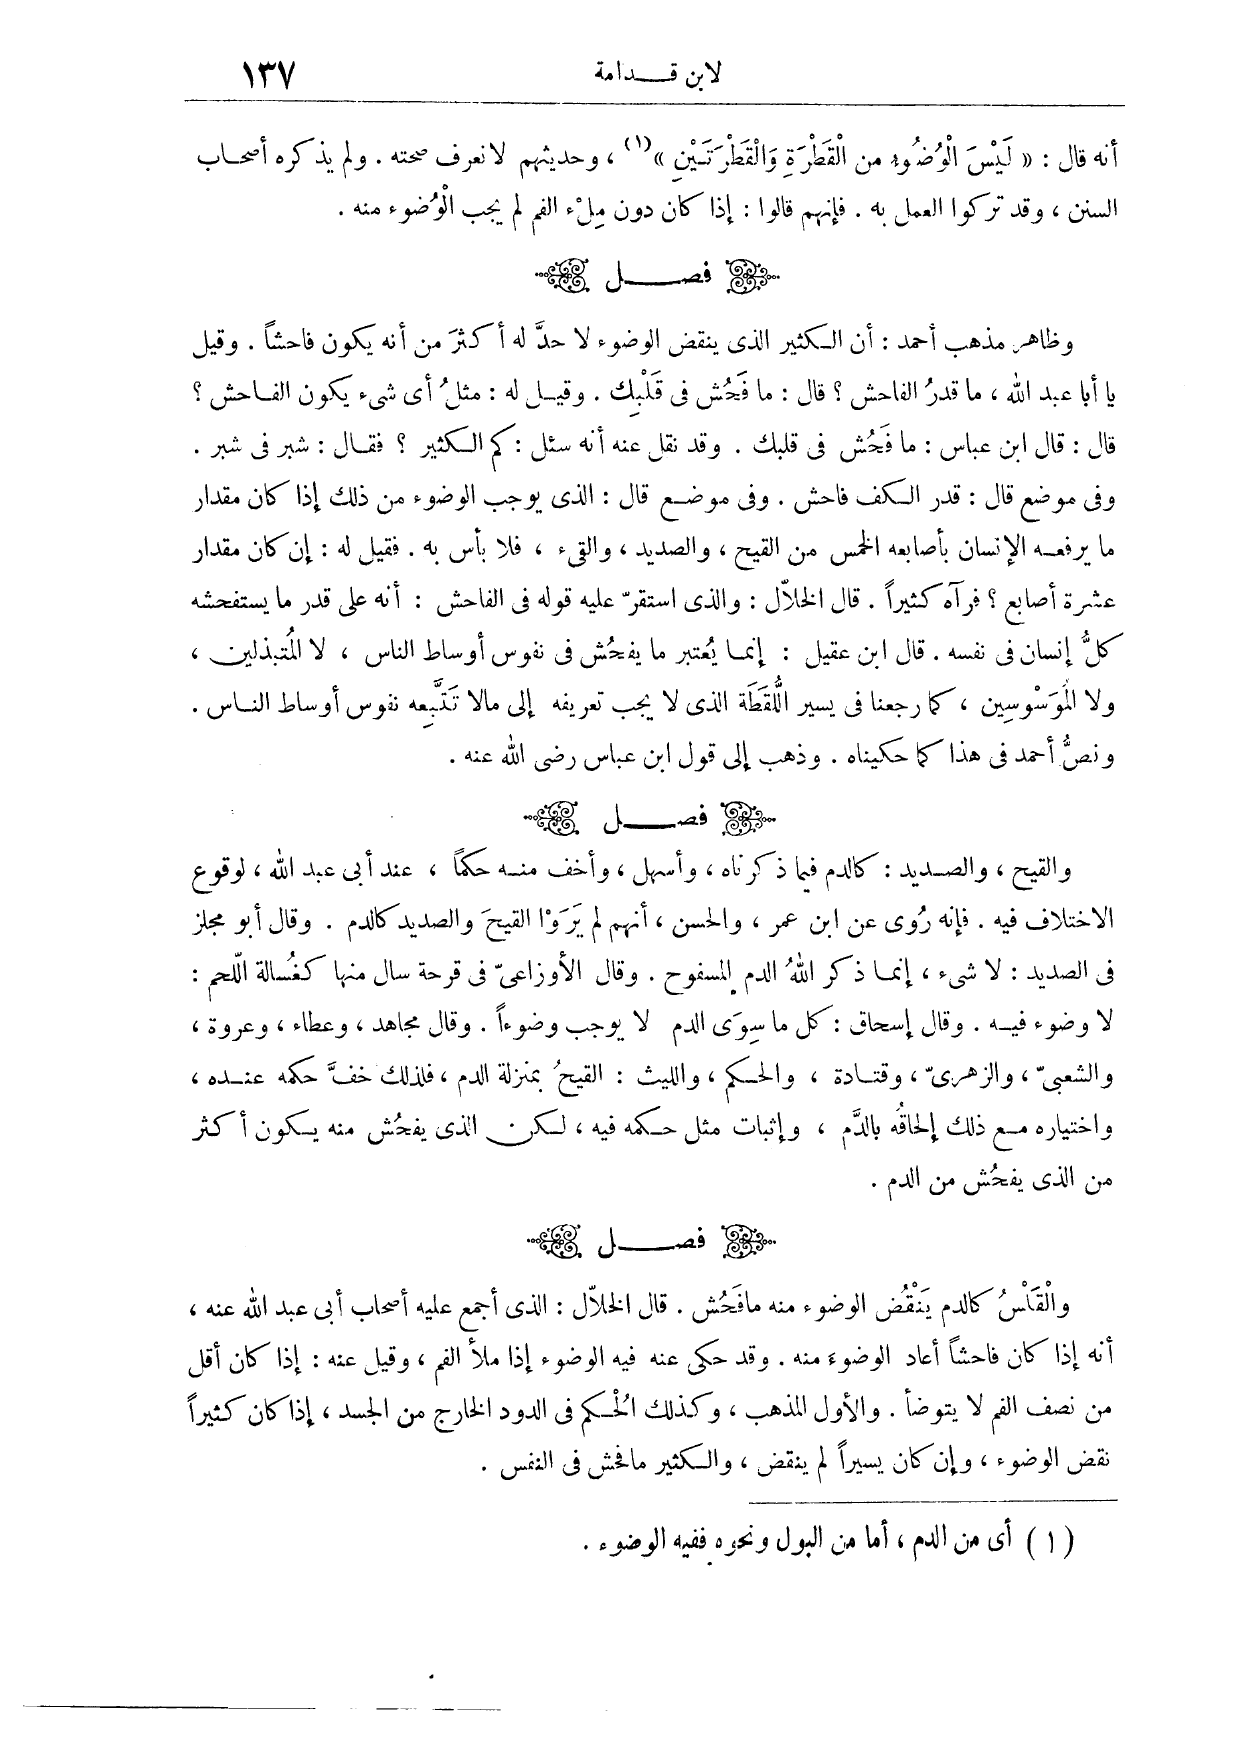 لابن قـــدامة ١٣٧
أنه قال : « لَيْسَ الْوُضُوء من الْقَطْرَةِ وَالْقَطْرَتَيْنِ »(١) ، وحديثهم لا نعرف صحته . ولم يذكره أصحاب
السنن ، وقد تركوا العمل به . فإنهم قالوا : إذا كان دون مِلْء الفم لم يجب الْوُضوء منه .
فصـــل
وظاهر مذهب أحمد : أن الـكثير الذى ينقض الوضوء لا حدَّ له أكثرَ من أنه يكون فاحشاً . وقيل
يا أبا عبد الله ، ما قدرُ الفاحش ؟ قال : ما فَحُش فى قَلْبِك . وقيـل له : مثلُ أى شىء يكون الفـاحش ؟
قال : قال ابن عباس : ما فَحُش فى قلبك . وقد نقل عنه أنه سئل : كم الـكثير ؟ فقـال : شبر فى شبر .
وفى موضع قال : قدر الـكف فاحش . وفى موضـع قال : الذى يوجب الوضوء من ذلك إذا كان مقدار
ما يرفعـه الإنسان بأصابعه الخمس من القيح ، والصديد ، والقىء ، فلا بأس به . فقيل له : إن كان مقدار
عشرة أصابع ؟ فرآه كثيراً . قال الخلاّل : والذى استقرّ عليه قوله فى الفاحش : أنه على قدر ما يستفحشه
كلُّ إنسان فى نفسه . قال ابن عقيل : إنمـا يُعتبر ما يفحُش فى نفوس أوساط الناس ، لا المُتبذلين ،
ولا المُوَسْوِسِين ، كما رجعنا فى يسير اللُّقَطَة الذى لا يجب تعريفه إلى مالا تَتَّبِعه نفوس أوساط النـاس .
ونصُّ أحمد فى هذا كما حكيناه . وذهب إلى قول ابن عباس رضى الله عنه .
فصـــل
والقيح ، والصـديد : كالدم فيما ذكرناه ، وأسهل ، وأخف منـه حكماً ، عند أبى عبد الله ، لوقوع
الاختلاف فيه . فإنه رُوى عن ابن عمر ، والحسن ، أنهم لم يَرَوْا القيحَ والصديد كالدم . وقال أبو مجلز
فى الصديد : لا شىء ، إنمـا ذكر اللهُ الدم المسفوح . وقال الأوزاعىّ فى قرحة سال منها كغُسالة اللّحم :
لا وضوء فيـه . وقال إسحاق : كل ما سِوَى الدم لا يوجب وضوءاً . وقال مجاهد ، وعطاء ، وعروة ،
والشعبىّ ، والزهرىّ ، وقتـادة ، والحـكم ، والليث : القيحُ بمنزلة الدم ، فلذلك خفَّ حكمه عنـده ،
واختياره مـع ذلك إلحاقُه بالدَّم ، وإثبات مثل حـكمه فيه ، لـكن الذى يفحُش منه يـكون أكثر
من الذى يفحُش من الدم .
فصـــل
والْقَلْسُ كالدم يَنْقُض الوضوء منه مافَحُش . قال الخلاّل : الذى أجمع عليه أصحاب أبى عبد الله عنه ،
أنه إذا كان فاحشاً أعاد الوضوءَ منه . وقد حكى عنه فيه الوضوء إذا ملأ الفم ، وقيل عنه : إذا كان أقل
من نصف الفم لا يتوضأ . والأول المذهب ، وكذلك الْحُـكم فى الدود الخارج من الجسد ، إذا كان كثيراً
نقض الوضوء ، وإن كان يسيراً لم ينقض ، والـكثير مافحش فى النفس .
( ١ ) أى من الدم ، أما من البول ونحوه ففيه الوضوء .